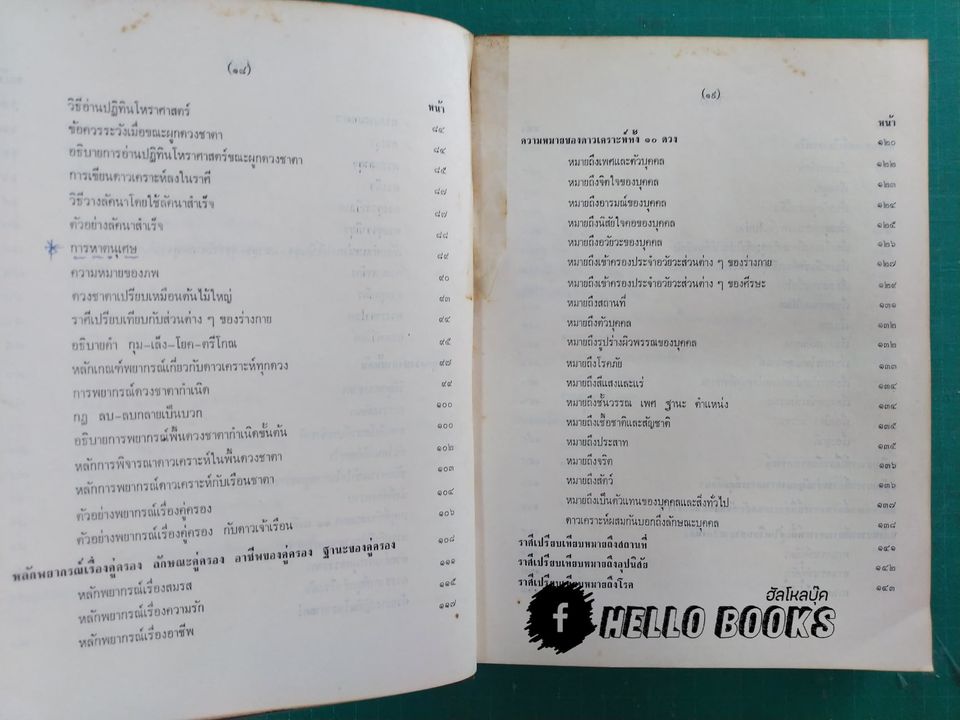 (๑๘)
หน้า
วิธีอ่านปฏิทินโหราศาสตร์ ๘๔
ข้อควรระวังเมื่อขณะผูกดวงชาตา ๘๔
อธิบายการอ่านปฏิทินโหราศาสตร์ขณะผูกดวงชาตา ๘๕
การเขียนดาวเคราะห์ลงในราศี ๘๗
วิธีวางลัคนาโดยใช้ลัคนาสำเร็จ ๘๗
ตัวอย่างลัคนาสำเร็จ ๘๘
การหาตนุเศษ ๘๙
ความหมายของภพ ๙๐
ดวงชาตาเปรียบเหมือนต้นไม้ใหญ่ ๙๓
ราศีเปรียบเทียบกับส่วนต่าง ๆ ของร่างกาย ๙๔
อธิบายคำ กุม-เล็ง-โยค-ตรีโกณ ๙๕
หลักเกณฑ์พยากรณ์เกี่ยวกับดาวเคราะห์ทุกดวง ๙๘
การพยากรณ์ดวงชาตากำเนิด ๙๙
กฎ ลบ-ลบกลายเป็นบวก ๑๐๐
อธิบายการพยากรณ์พื้นดวงชาตากำเนิดขั้นต้น ๑๐๐
หลักการพิจารณาดาวเคราะห์ในพื้นดวงชาตา ๑๐๒
หลักการพยากรณ์ดาวเคราะห์กับเรือนชาตา ๑๐๓
ตัวอย่างพยากรณ์เรื่องคู่ครอง ๑๐๔
ตัวอย่างพยากรณ์เรื่องคู่ครอง กับดาวเจ้าเรือน ๑๐๖
หลักพยากรณ์เรื่องคู่ครอง ลักษณะคู่ครอง อาชีพของคู่ครอง ฐานะของคู่ครอง ๑๐๘
หลักพยากรณ์เรื่องสมรส ๑๑๑
หลักพยากรณ์เรื่องความรัก ๑๑๕
หลักพยากรณ์เรื่องอาชีพ ๑๑๗
(๑๙)
หน้า
ความหมายของดาวเคราะห์ทั้ง ๑๐ ดวง ๑๒๐
หมายถึงเพศและตัวบุคคล ๑๒๒
หมายถึงจิตใจของบุคคล ๑๒๓
หมายถึงอารมณ์ของบุคคล ๑๒๔
หมายถึงนิสัยใจคอของบุคคล ๑๒๕
หมายถึงอวัยวะของบุคคล ๑๒๖
หมายถึงเข้าครองประจำอวัยวะส่วนต่าง ๆ ของร่างกาย ๑๒๗
หมายถึงเข้าครองประจำอวัยวะส่วนต่าง ๆ ของศีรษะ ๑๒๙
หมายถึงสถานที่ ๑๓๑
หมายถึงตัวบุคคล ๑๓๒
หมายถึงรูปร่างผิวพรรณของบุคคล ๑๓๒
หมายถึงโรคภัย ๑๓๓
หมายถึงสีแสงและแร่ ๑๓๔
หมายถึงชั้นวรรณ เพศ ฐานะ ตำแหน่ง ๑๓๔
หมายถึงเชื้อชาติและสัญชาติ ๑๓๕
หมายถึงประสาท ๑๓๕
หมายถึงจริต ๑๓๖
หมายถึงสัตว์ ๑๓๖
หมายถึงเป็นตัวแทนของบุคคลและสิ่งทั่วไป ๑๓๗
ดาวเคราะห์ผสมกันบอกถึงลักษณะบุคคล ๑๓๘
ราศีเปรียบเทียบหมายถึงสถานที่ ๑๔๑
ราศีเปรียบเทียบหมายถึงอุปนิสัย ๑๔๒
ราศีเปรียบเทียบหมายถึงโรค ๑๔๓
ฮัลโหลบุ๊ค
f HELLO BOOKS